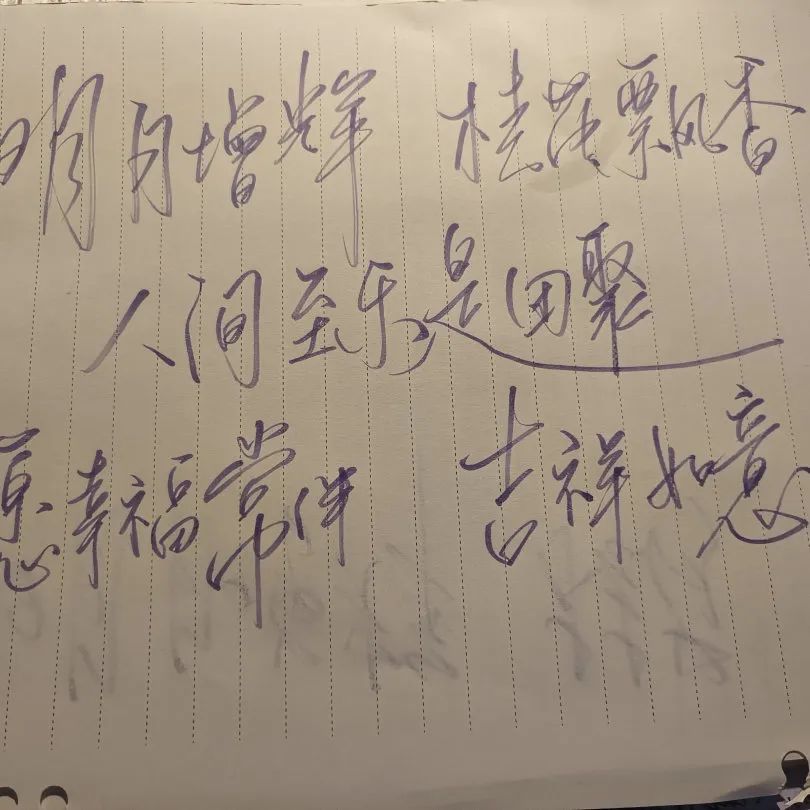 明月增辉 桂花飘香
人间至乐是团聚
愿幸福常伴 吉祥如意